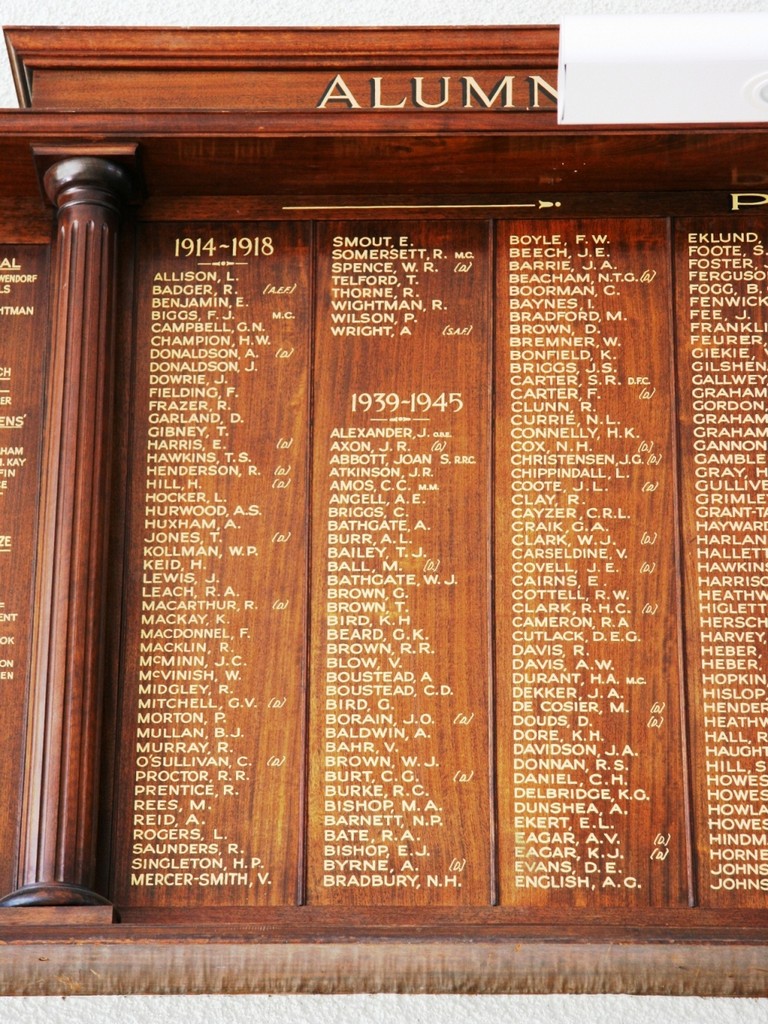 ALUMN
P
AL
WENDORF
LS
HTMAN
CH
ER
ENS'
HAM
H. KAY
FIN
CE
ZE
ENT
OOK
SON
EN
1914~1918
ALLISON, L.
BADGER, R. (A.E.F.)
BENJAMIN, E.
BIGGS, F. J. M.C.
CAMPBELL, G.N.
CHAMPION, H.W.
DONALDSON, A. (D)
DONALDSON, J.
DOWRIE, J.
FIELDING, F.
FRAZER, R.
GARLAND, D.
GIBNEY, T.
HARRIS, E. (D)
HAWKINS, T.S.
HENDERSON, R. (D)
HILL, H. (D)
HOCKER, L.
HURWOOD, A.S.
HUXHAM, A.
JONES, T. (D)
KOLLMAN, W.P.
KEID, H.
LEWIS, J.
LEACH, R. A.
MACARTHUR, R. (D)
MACKAY, K.
MACDONNEL, F.
MACKLIN, R.
McMINN, J.C.
McVINISH, W.
MIDGLEY, R.
MITCHELL, G.V. (D)
MORTON, P.
MULLAN, B.J.
MURRAY, R.
O'SULLIVAN, C. (D)
PROCTOR, R. R.
PRENTICE, R.
REES, M.
REID, A.
ROGERS, L.
SAUNDERS, R.
SINGLETON, H. P.
MERCER-SMITH, V.
SMOUT, E.
SOMERSETT, R. M.C.
SPENCE, W. R. (D)
TELFORD, T.
THORNE, R.
WIGHTMAN, R.
WILSON, P.
WRIGHT, A (S.A.F.)
1939-1945
ALEXANDER, J. O.B.E.
AXON, J. R. (D)
ABBOTT, JOAN S. R.R.C.
ATKINSON, J.R.
AMOS, C.C. M.M.
ANGELL, A.E.
BRIGGS, C.
BATHGATE, A.
BURR, A.L.
BAILEY, T. J.
BALL, M. (D)
BATHGATE, W. J.
BROWN, G.
BROWN, T.
BIRD, K.H
BEARD, G.K.
BROWN, R.R.
BLOW, V.
BOUSTEAD, A
BOUSTEAD, C.D.
BIRD, G.
BORAIN, J.O. (D)
BALDWIN, A.
BAHR, V.
BROWN, W.J.
BURT, C.G. (D)
BURKE, R.C.
BISHOP, M. A.
BARNETT, N.P.
BATE, R.A.
BISHOP, E.J.
BYRNE, A. (D)
BRADBURY, N.H.
BOYLE, F. W.
BEECH, J. E.
BARRIE, J. A.
BEACHAM, N.T.G. (D)
BOORMAN, C.
BAYNES, I.
BRADFORD, M.
BROWN, D.
BREMNER, W.
BONFIELD, K.
BRIGGS, J.S.
CARTER, S.R. D.F.C.
CARTER, F. (D)
CLUNN, R.
CURRIE, N.L.
CONNELLY, H.K.
COX, N.H. (D)
CHRISTENSEN, J.G. (D)
CHIPPINDALL, L.
COOTE, J.L. (D)
CLAY, R.
CAYZER, C.R.L.
CRAIK, G.A.
CLARK, W.J. (D)
CARSELDINE, V.
COVELL, J.E. (D)
CAIRNS, E.
COTTELL, R.W.
CLARK, R.H.C. (D)
CAMERON, R.A
CUTLACK, D.E.G.
DAVIS, R.
DAVIS, A.W.
DURANT, H.A. M.C.
DEKKER, J.A.
DE COSIER, M. (D)
DOUDS, D. (D)
DORE, K.H.
DAVIDSON, J.A.
DONNAN, R.S.
DANIEL, C.H.
DELBRIDGE, K.G.
DUNSHEA, A.
EKERT, E.L.
EAGAR, A.V. (D)
EAGAR, K.J. (D)
EVANS, D.E.
ENGLISH, A.G.
EKLUND,
FOOTE, S.
FOSTER, J
FERGUSO
FOGG, B.
FENWICK
FEE, J.
FRANKLI
FEURER,
GIEKIE,
GILSHEN
GALLWEY
GRAHAM
GORDON,
GRAHAM
GRAHAM
GANNON
GAMBLE
GRAY, H
GULLIVE
GRIMLE
GRANT-TA
HAYWARD
HARLAN
HALLETT
HAWKINS
HARRISO
HEATHW
HIGLETT
HERSCH
HARVEY,
HEBER,
HEBER,
HOPKIN
HISLOP,
HENDER
HEATHW
HALL, R
HAUGHT
HILL, S
HOWES
HOWES
HOWLA
HOWES
HINDM
HORNE
JOHNS
JOHNS